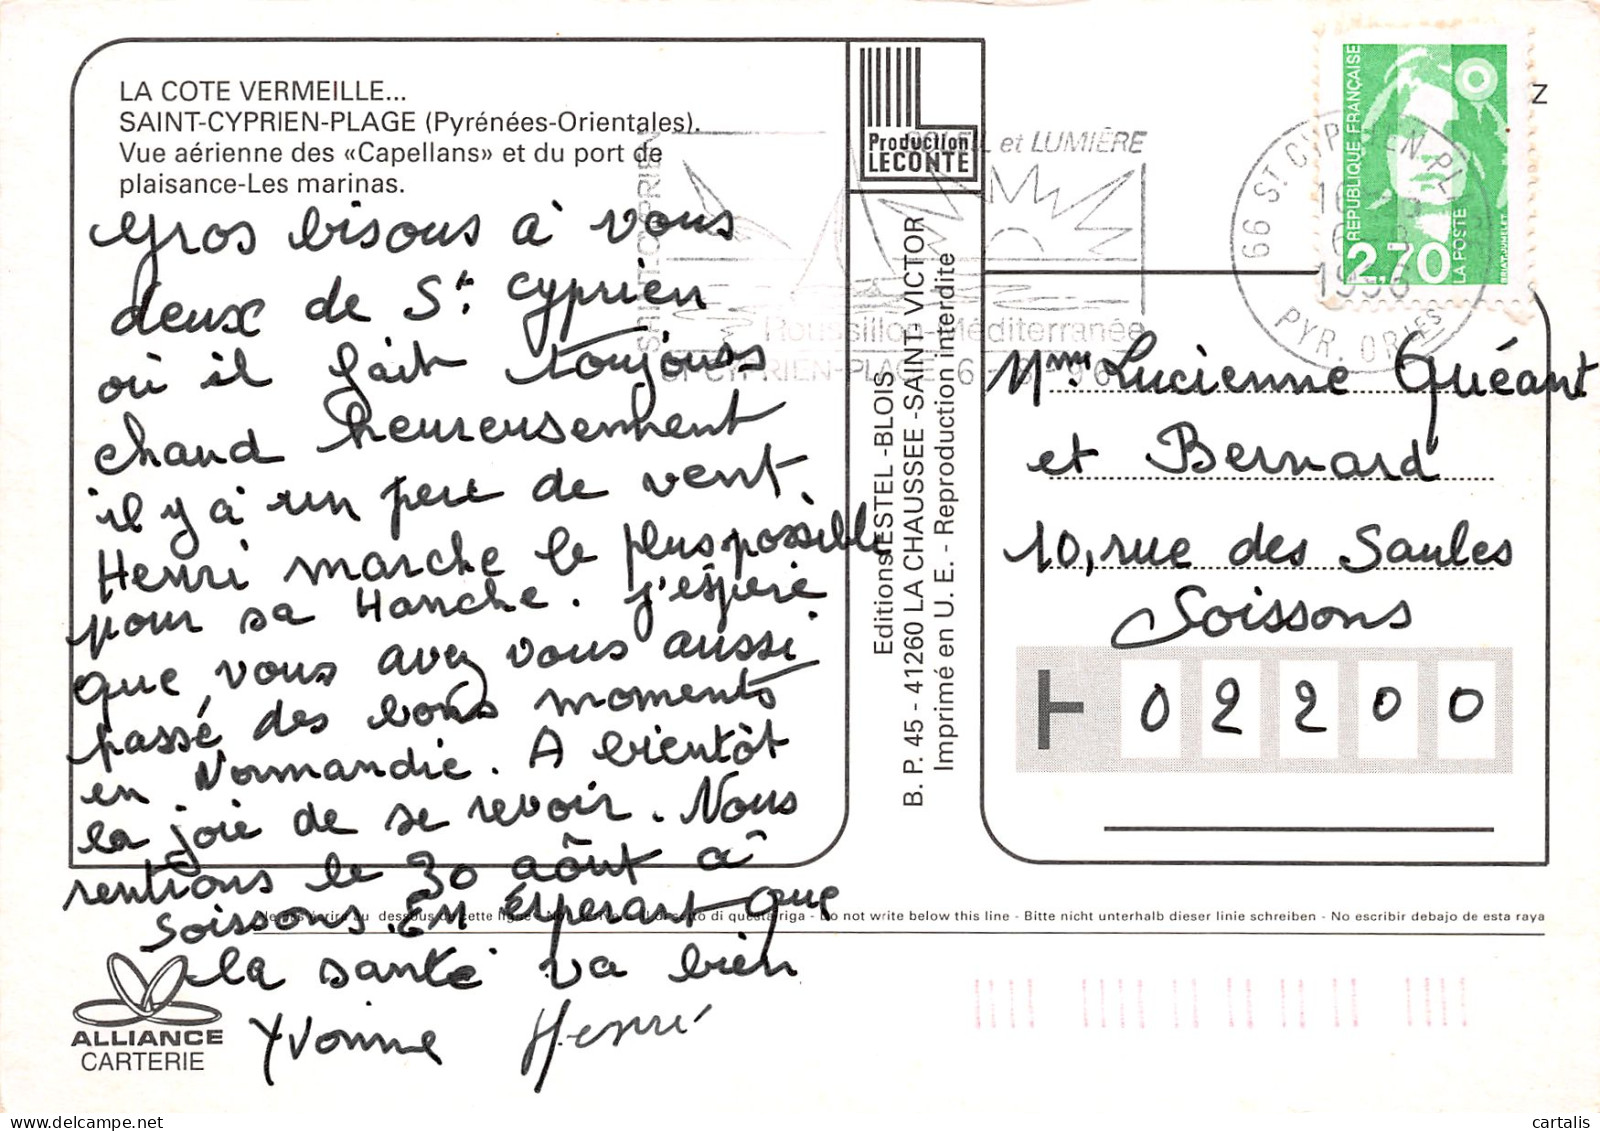 LA COTE VERMEILLE...
SAINT-CYPRIEN-PLAGE (Pyrénées-Orientales).
Vue aérienne des «Capellans» et du port de
plaisance-Les marinas.
Gros bisous à vous
deux de St. Cyprien
où il fait toujours
chaud heureusement
il y à un peu de vent.
Henri marche le plus possible
pour sa Hanche. J'éspère
que vous avez vous aussi
passé des bons moments
en Normandie. A bientôt
la joie de se revoir. Nous
rentrons le 30 aôut à
Soissons. En Ésperant que
la santé va bien
Yvonne Henri
ALLIANCE
CARTERIE
Production
LECONTE
Editions ESTEL -BLOIS
B. P. 45 - 41260 LA CHAUSSEE -SAINT- VICTOR
Imprimé en U. E. - Reproduction interdite
SAINT-CYPRIEN
SOLEIL et LUMIÈRE
Roussillon-Méditerranée
ST CYPRIEN-PLAGE
66 ST CYPRIEN PL
1996
PYR. ORIES
RÉPUBLIQUE FRANÇAISE
2,70
LA POSTE
BRIAT-JUMELET
Z
Mme Lucienne Quéant
et Bernard
10, rue des Saules
Soissons
02200
Ne pas écrire au dessous de cette ligne - Non scrivere al di sotto di questa riga - Do not write below this line - Bitte nicht unterhalb dieser linie schreiben - No escribir debajo de esta raya
cartalis